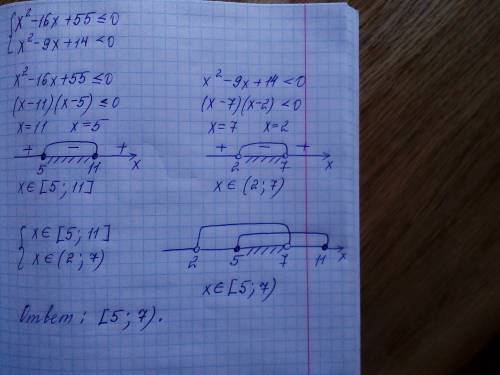 {x²-16x+55≤0
{x²-9x+14<0
x²-16x+55≤0
(x-11)(x-5)≤0
x=11 x=5
+ - +
5 11 x
x∈[5; 11]
x²-9x+14<0
(x-7)(x-2)<0
x=7 x=2
+ - +
2 7 x
x∈(2; 7)
{x∈[5; 11]
{x∈(2; 7)
2 5 7 11 x
x∈[5; 7)
Ответ: [5; 7).